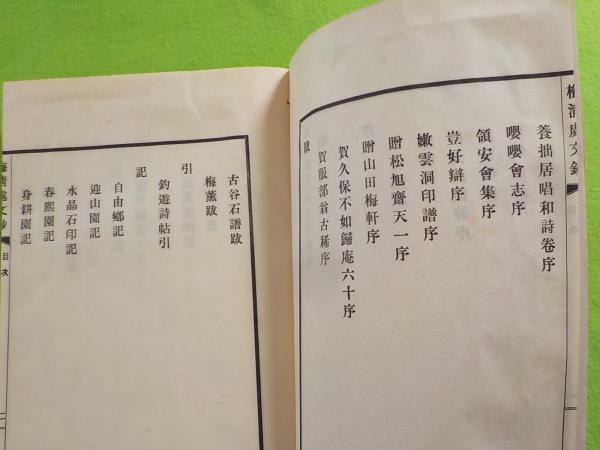 養拙居唱和詩卷序
嚶嚶會志序
領安會集序
豈好辯序
嫩雲洞印譜序
贈松旭齋天一序
贈山田梅軒序
賀久保不如歸庵六十序
賀服部翁古稀序
跋
古谷石譜跋
梅薰跋
引
釣遊詩帖引
記
自由鄉記
迎山園記
水晶石印記
春熙園記
身耕園記
目次